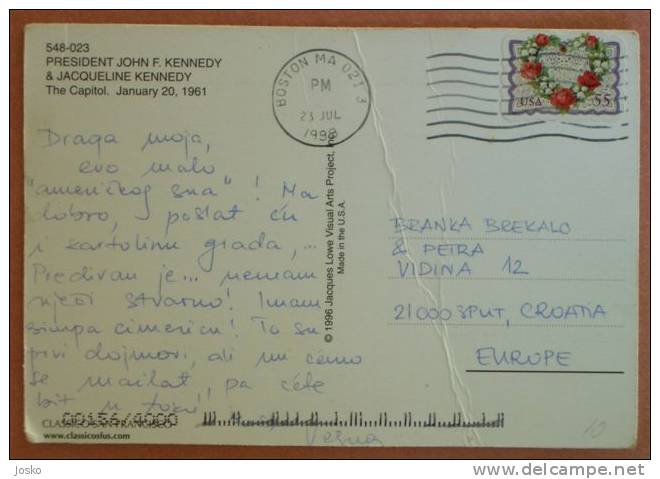 548-023
PRESIDENT JOHN F. KENNEDY
& JACQUELINE KENNEDY
The Capitol. January 20, 1961
BOSTON MA 021 3
PM
23 JUL
1998
USA 55
Draga moja,
evo malo
"američkog sna"! Ma
dobro, poslat ću
i kartolinu grada,...
Predivan je... nemam
riječi stvarno! Imam
simpa cimericu! To su
prvi dojmovi, ali mi ćemo
se mailat, pa ćete
bit u toku!
Vesna
© 1996 Jacques Lowe Visual Arts Project, Inc.
Made in the U.S.A.
BRANKA BREKALO
& PETRA
VIDINA 12
21000 SPLIT, CROATIA
EUROPE
00156/4000
CLASSICO SAN FRANCISCO
www.classicosfus.com
10
Josko
http://www.delcampe.net